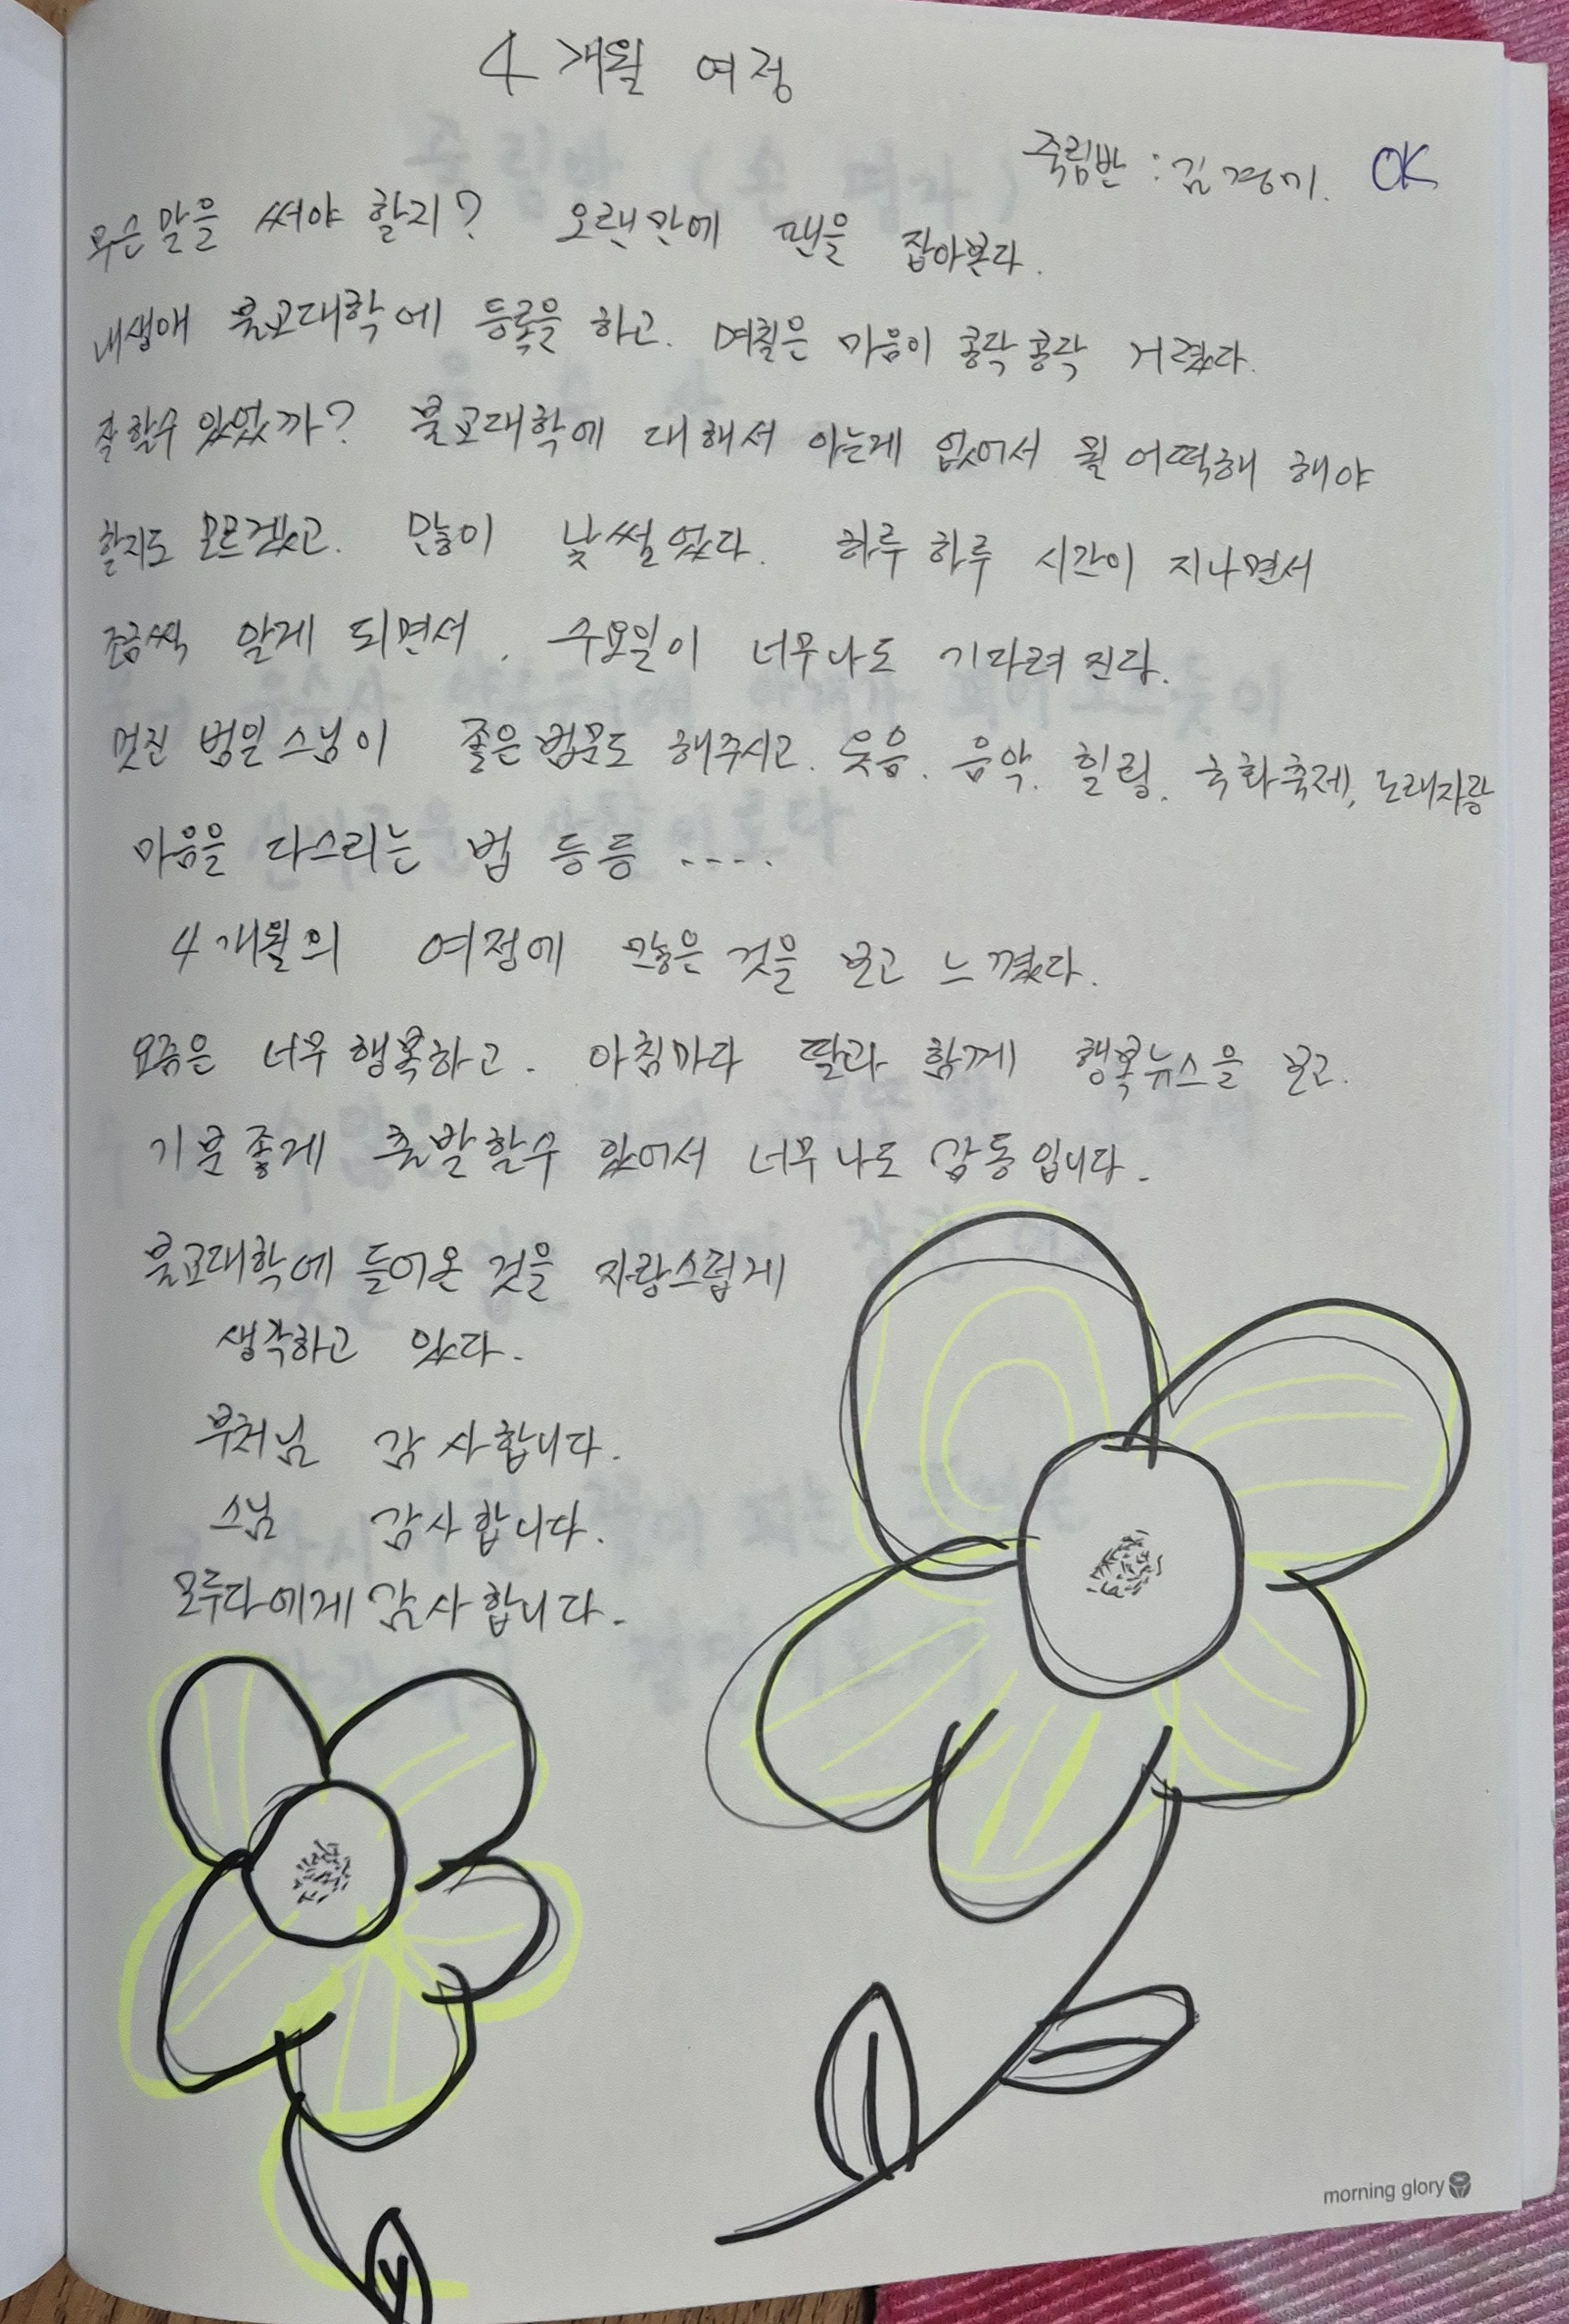 4개월 여정
죽림반 : 김경미. OK
무슨말을 써야 할지? 오랜만에 팬을 잡아본다.
내생애 불교대학에 등록을 하고. 며칠은 마음이 콩닥콩닥 거렸다.
잘할수 있었까? 불교대학에 대해서 아는게 없어서 뭘 어떡해 해야
할지도 모르겠고. 많이 낯썰었다. 하루하루 시간이 지나면서
조금씩 알게 되면서. 수요일이 너무나도 기다려진다.
멋진 범일스님이 좋은법문도 해주시고. 웃음. 음악. 힐링. 국화축제, 노래자랑
마음을 다스리는 법 등등 .....
4개월의 여정에 많은 것을 보고 느꼈다.
요즘은 너무 행복하고. 아침마다 딸과 함께 행복뉴스을 보고.
기분좋게 출발할수 있어서 너무나도 감동입니다.
불교대학에 들어온 것을 자랑스럽게
생각하고 있다.
부처님 감사합니다.
스님 감사합니다.
모두다에게 감사합니다.
morning glory